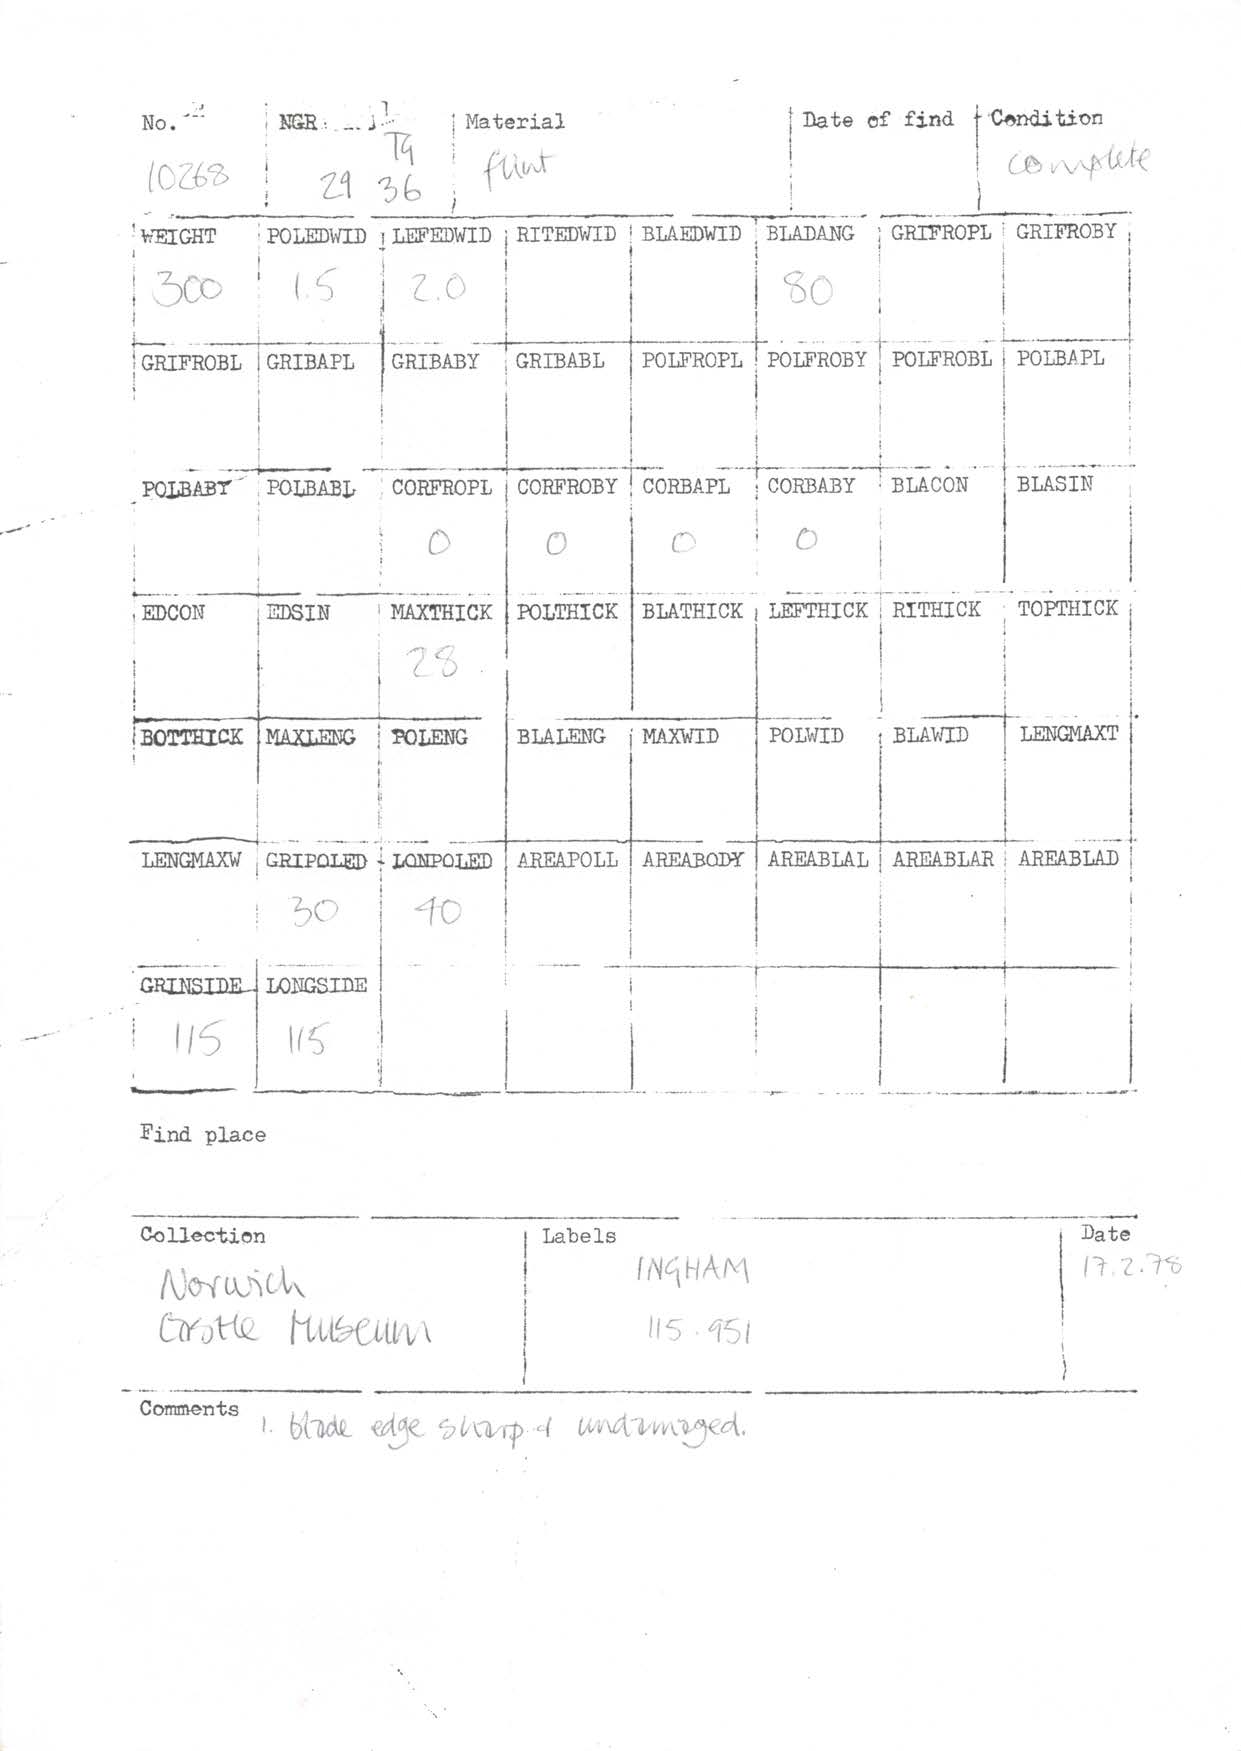 No. NGR Material Date of find Condition
10268 TG 29 36 flint complete
WEIGHT POLEDWID LEFEDWID RITEDWID BLAEDWID BLADANG GRIFROPL GRIFROBY
300 1.5 2.0 80
GRIFROBL GRIBAPL GRIBABY GRIBABL POLFROPL POLFROBY POLFROBL POLBAPL
POLBABY POLBABL CORFROPL CORFROBY CORBAPL CORBABY BLACON BLASIN
0 0 0 0
EDCON EDSIN MAXTHICK POLTHICK BLATHICK LEFTHICK RITHICK TOPTHICK
28
BOTTHICK MAXLENG POLENG BLALENG MAXWID POLWID BLAWID LENGMAXT
LENGMAXW GRIPOLED LONPOLED AREAPOLL AREABODY AREABLAL AREABLAR AREABLAD
30 40
GRINSIDE LONGSIDE
115 115
Find place
Collection Labels Date
Norwich INGHAM 17.2.78
Castle Museum 115.951
Comments 1. blade edge sharp & undamaged.